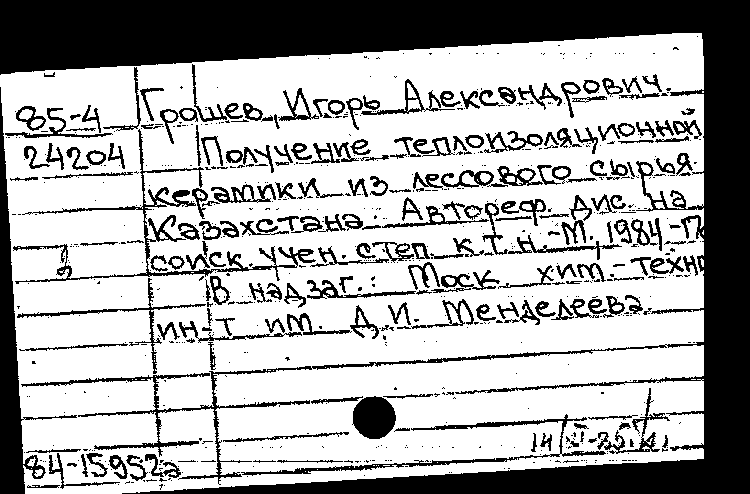 85-4 Грошев, Игорь Александрович.
24204 Получение теплоизоляционной
керамики из лессового сырья
Казахстана: Автореф. дис. на
соиск. учен. степ. к.т.н.-М., 1984-
В надзаг.: Моск. хим.-техно
ин-т им. Д.И. Менделеева.
84-15952а